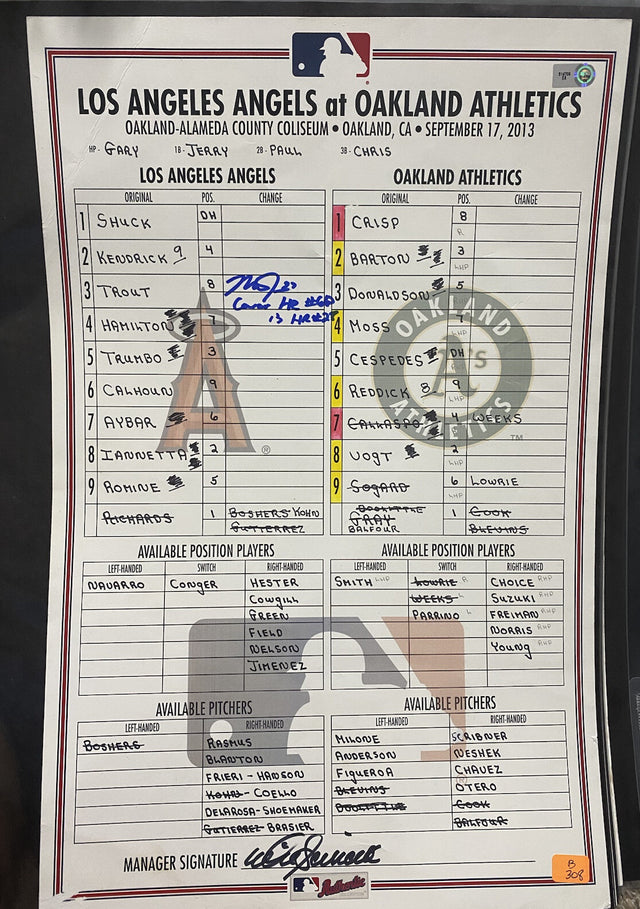 LOS ANGELES ANGELS at OAKLAND ATHLETICS
OAKLAND-ALAMEDA COUNTY COLISEUM • OAKLAND, CA • SEPTEMBER 17, 2013
HP- GARY 1B- JERRY 2B- PAUL 3B- CHRIS
LOS ANGELES ANGELS
ORIGINAL POS. CHANGE
1 SHUCK DH
2 KENDRICK 9 4
3 TROUT 8
Career HR #60
13 HR #25
4 HAMILTON 7
5 TRUMBO 3
6 CALHOUN 9
7 AYBAR 6
8 IANNETTA 2
9 ROMINE 5
RICHARDS 1 BOSHERS KOHN
GUTIERREZ
OAKLAND ATHLETICS
ORIGINAL POS. CHANGE
1 CRISP 8
R
2 BARTON 3
LHP
3 DONALDSON 5
4 MOSS
LHP
5 CESPEDES DH
6 REDDICK 8 9
LHP
7 CALLASPO 4 WEEKS
8 VOGT 2
LHP
9 SOGARD 6 LOWRIE
LHP
DOOLITTLE
GRAY 1 COOK
BALFOUR BLEVINS
OAKLAND
A's
ATHLETICS
TM
A
®
AVAILABLE POSITION PLAYERS
LEFT-HANDED SWITCH RIGHT-HANDED
NAVARRO CONGER HESTER
COWGILL
GREEN
FIELD
NELSON
JIMENEZ
AVAILABLE POSITION PLAYERS
LEFT-HANDED SWITCH RIGHT-HANDED
SMITH LHP LOWRIE R CHOICE RHP
WEEKS L SUZUKI RHP
PARRINO L FREIMAN RHP
NORRIS RHP
YOUNG RHP
AVAILABLE PITCHERS
LEFT-HANDED RIGHT-HANDED
BOSHERS RASMUS
BLANTON
FRIERI - HANSON
KOHN - COELLO
DELAROSA - SHOEMAKER
GUTIERREZ - BRASIER
AVAILABLE PITCHERS
LEFT-HANDED RIGHT-HANDED
MILONE SCRIBNER
ANDERSON NESHEK
FIGUEROA CHAVEZ
BLEVINS OTERO
DOOLITTLE COOK
BALFOUR
MANAGER SIGNATURE
Authentic
B
308